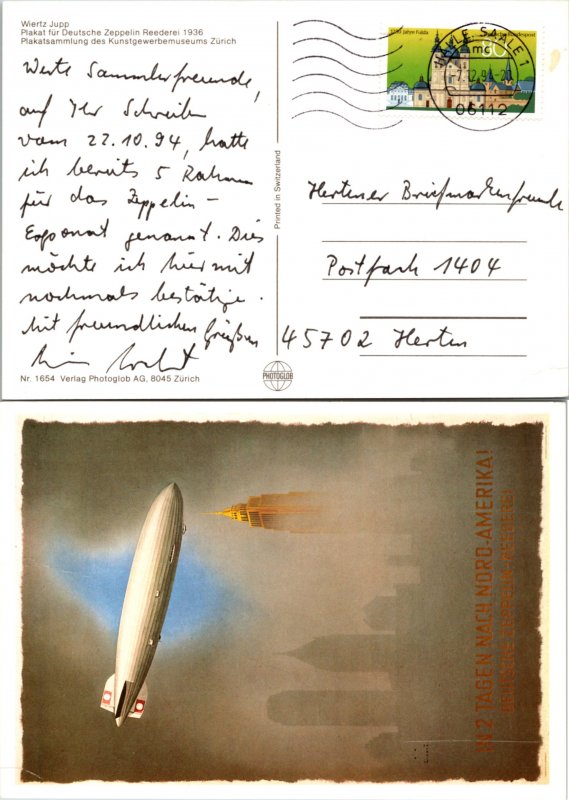 Wiertz Jupp
Plakat für Deutsche Zeppelin Reederei 1936
Plakatsammlung des Kunstgewerbemuseums Zürich
Werte Sammlerfreunde,
auf Ihr Schreiben
vom 22.10.94, hatte
ich bereits 5 Rahmen
für das Zeppelin-
Exponat genannt. Dies
möchte ich hiermit
nochmals bestätige.
Mit freundlichen Grüßen
Nr. 1654 Verlag Photoglob AG, 8045 Zürich
Printed in Switzerland
PHOTOGLOB
Jahre Fulda
Deutsche Bundespost
HALLE, SAALE 1
mc
06112
Hertener Briefmarkenfreunde
Postfach 1404
45702 Herten
IN 2 TAGEN NACH NORD-AMERIKA!
DEUTSCHE ZEPPELIN-REEDEREI